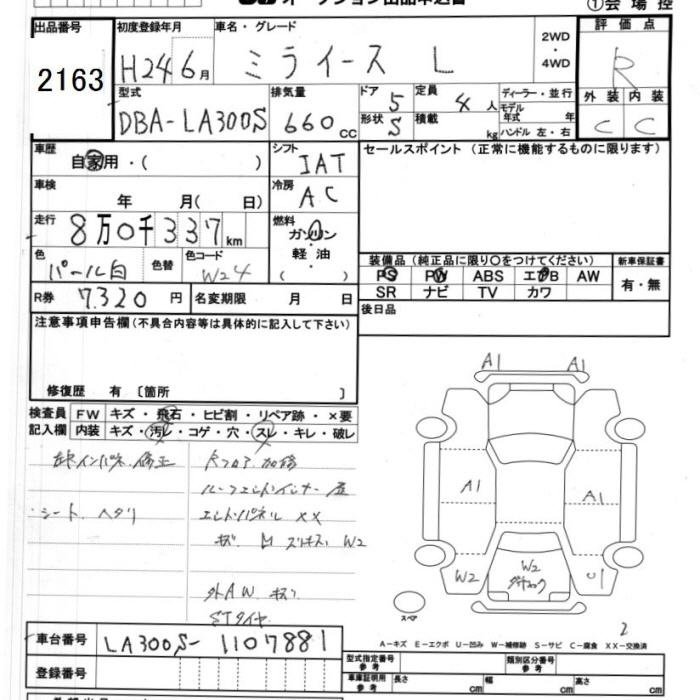 オークション出品申込書
①会場控
出品番号 初度登録年月 車名・グレード 2WD ・ 4WD 評価点
2163 H24 6月 ミライース L R
型式 排気量 ドア 定員 ディーラー・並行 外装 内装
DBA-LA300S 660cc 5 4人 モデル 年式 年 C C
形状 S 積載 kg ハンドル 左・右
車歴 自家用・( ) シフト IAT セールスポイント(正常に機能するものに限ります)
車検 年 月( 日) 冷房 AC
走行 8万0千337km 燃料 ガソリン・軽油 ( )
色 パール白 色替 色コード W24
装備品(純正品に限り〇をつけてください) 新車保証書
PS PW ABS エアB AW 有・無
SR ナビ TV カワ
R券 7,320円 名変期限 月 日 後日品
注意事項申告欄(不具合内容等は具体的に記入して下さい)
修復歴 有 〔箇所 〕
検査員記入欄 FW キズ・飛石・ヒビ割・リペア跡・×要
内装 キズ・汚レ・コゲ・穴・スレ・キレ・破レ
シート ヘタリ
エンドパネル XX
W2
外AW キズ
STタイヤ
A1 A1
A1 A1
W2 W2 U1
スペア
2
A-キズ E-エクボ U-凹み W-補修跡 S-サビ C-腐食 XX-交換済
車台番号 LA300S-1107881
型式指定番号 参考 類別区分番号 参考
登録番号 車庫証明用 参考 長さ cm 幅 cm 高さ cm